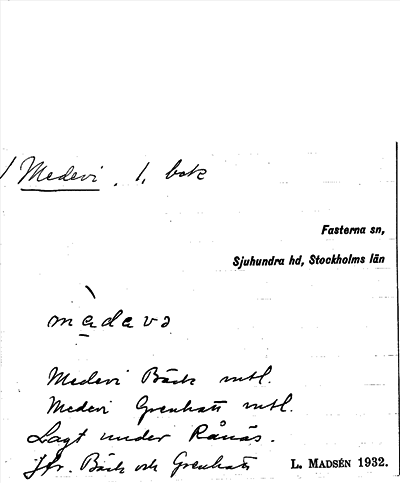 Medevi. 1. bok
Fasterna sn,
Sjuhundra hd, Stockholms län
màdavə
Medevi Bäck mtl.
Medevi Grenhatt mtl.
Lagt under Rånäs.
Jfr. Bäck och Grenhatt
L. MADSÉN 1932.